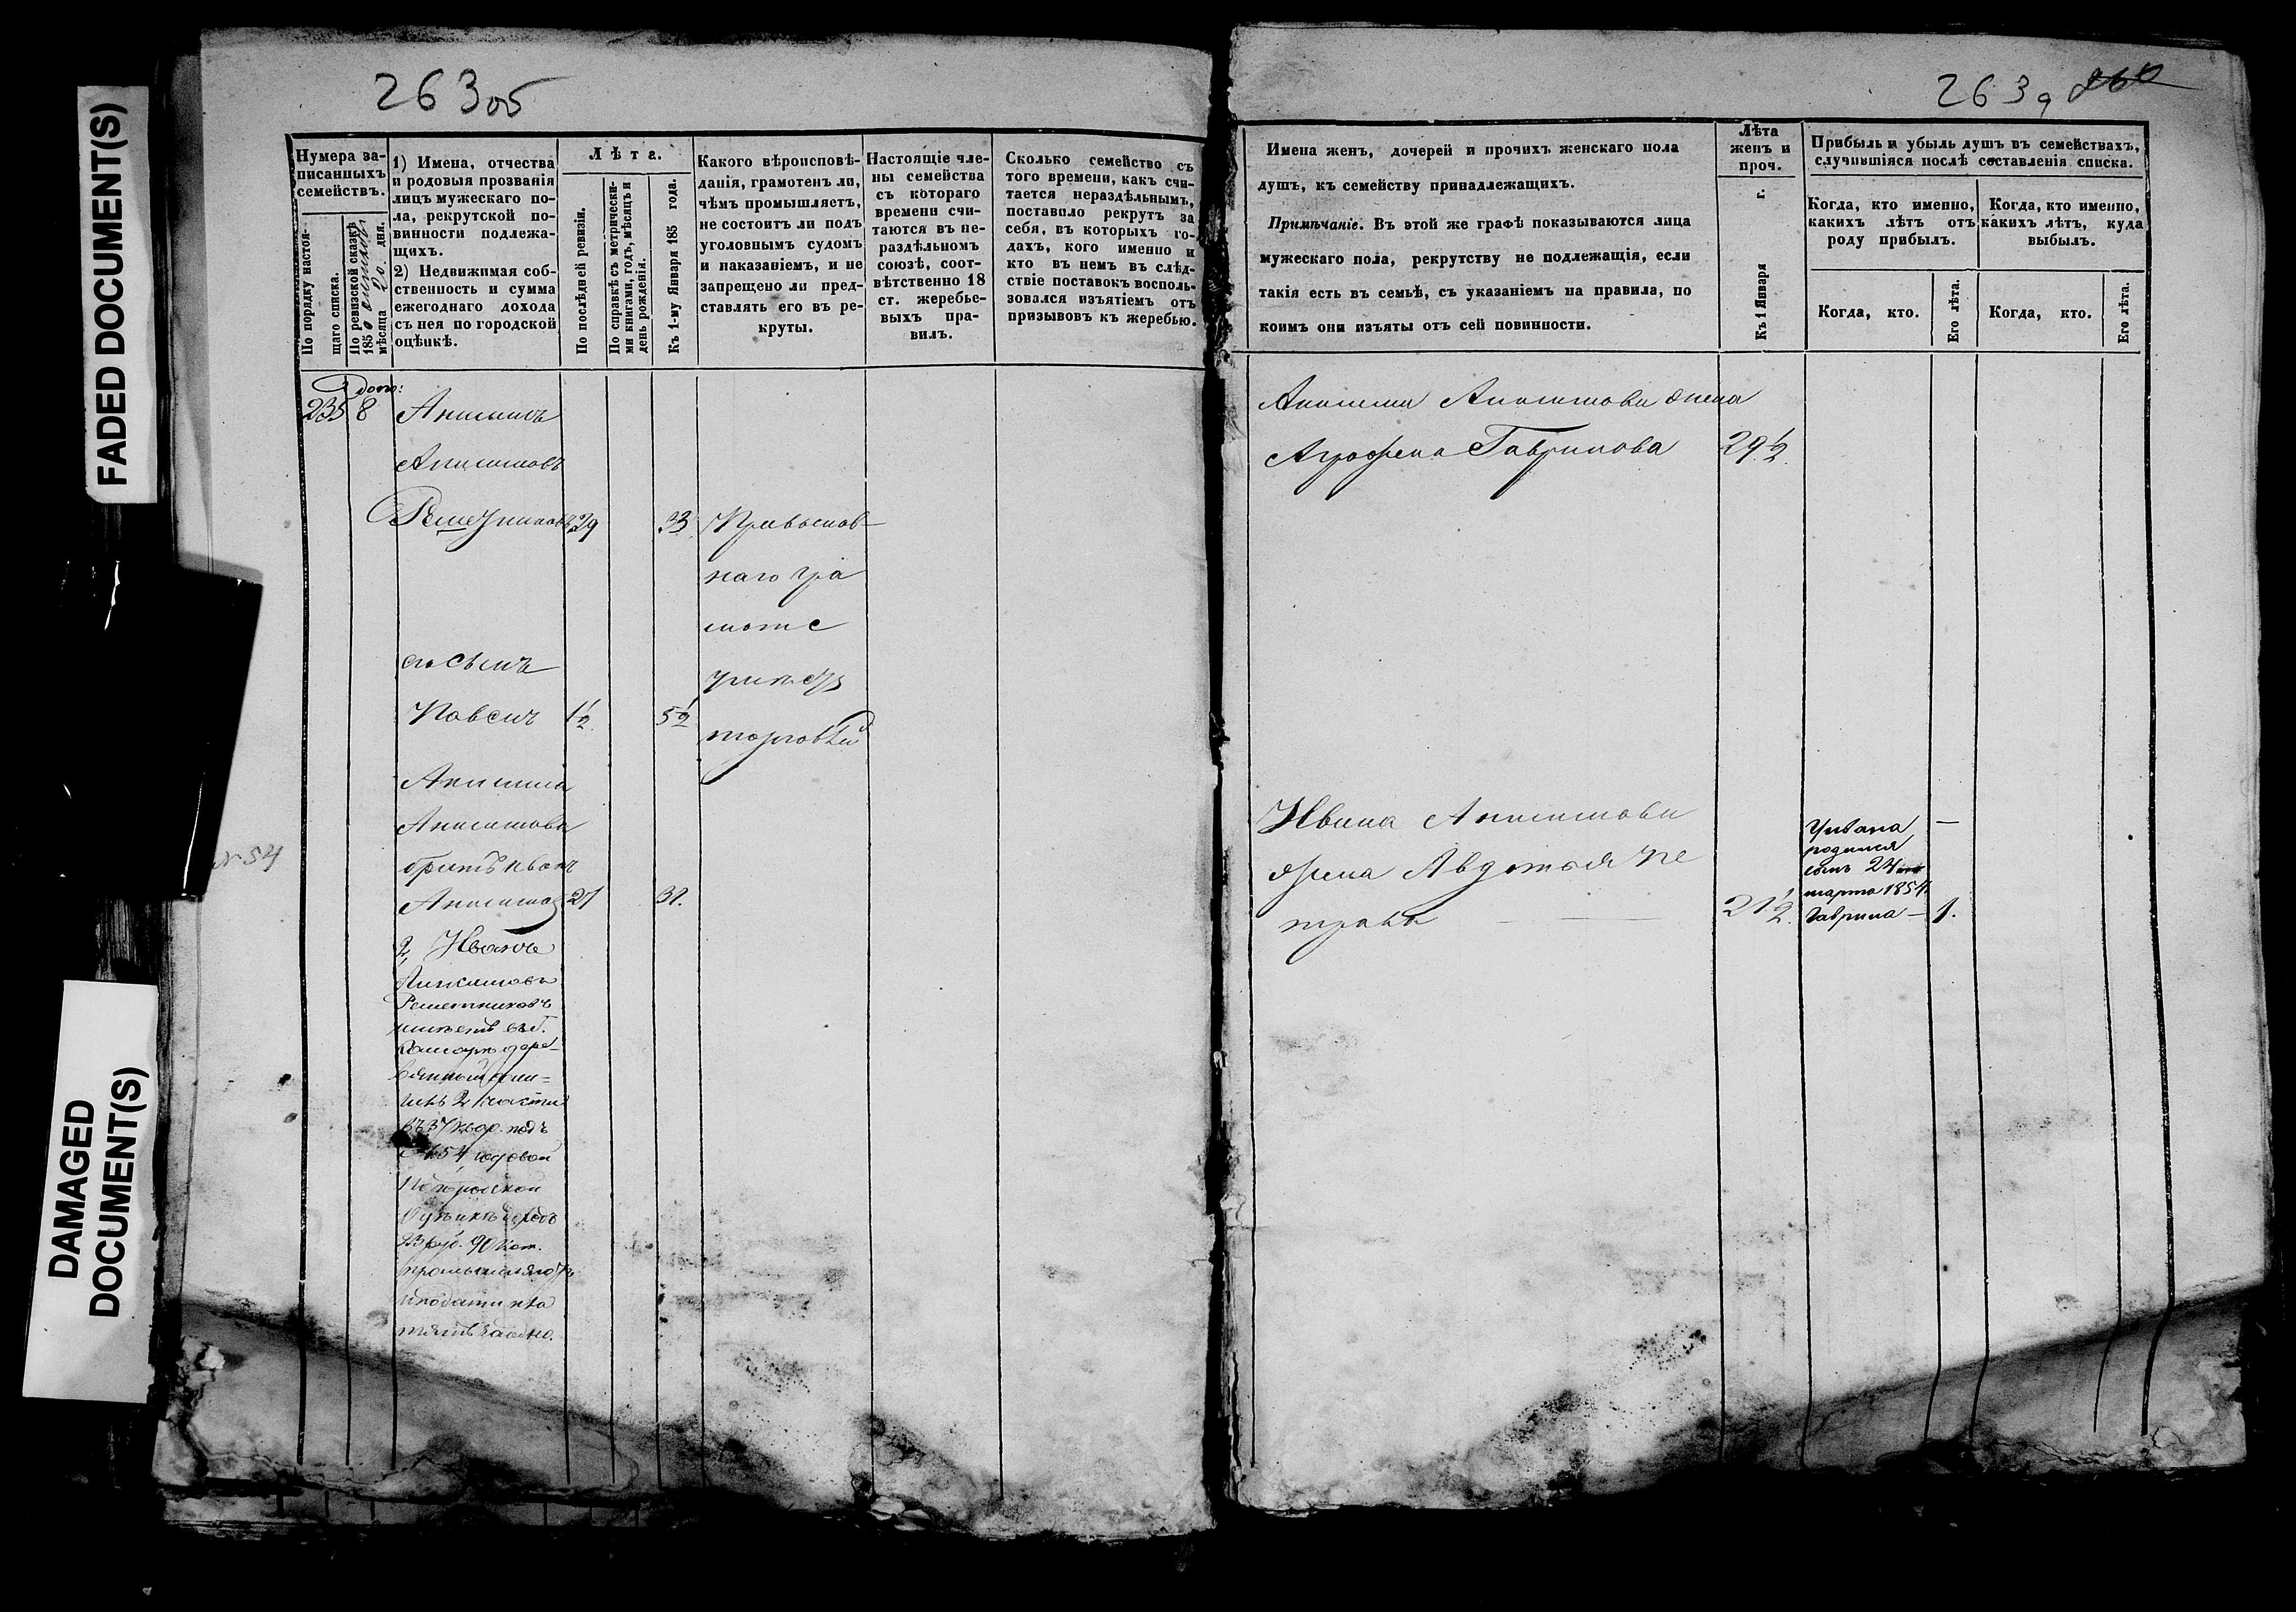 FADED DOCUMENT(S)
DAMAGED
DOCUMENT(S)
263об
Нумера за-
писанныхъ
семействъ.
По порядку настоя-
щаго списка.
По ревизской сказкѣ
185 0 октября
мѣсяца 20 дня.
1) Имена, отчества
и родовыя прозванія
лицъ мужескаго по-
ла, рекрутской по-
винности подлежа-
щихъ.
2) Недвижимая соб-
ственность и сумма
ежегоднаго дохода
съ нея по городской
оцѣнкѣ.
Лѣта.
По послѣдней ревизіи.
По справкѣ съ метрически-
ми книгами, годъ, мѣсяцъ и
день рожденія.
Къ 1-му Января 185 года.
Какого вѣроисповѣ-
данія, грамотенъ ли,
чѣмъ промышляетъ,
не состоитъ ли подъ
уголовнымъ судомъ
и наказаніемъ, и не
запрещено ли пред-
ставлять его въ ре-
круты.
Настоящіе чле-
ны семейства
съ котораго
времени счи-
таются въ не-
раздѣльномъ
союзѣ, соот-
вѣтственно 18
ст. жеребье-
выхъ пра-
вилъ.
Сколько семейство съ
того времени, какъ счи-
тается нераздѣльнымъ,
поставило рекрутъ за
себя, въ которыхъ го-
дахъ, кого именно и
кто въ немъ въ слѣд-
ствіе поставокъ восполь-
зовался изъятіемъ отъ
призывовъ къ жеребью.
235 8 Анисимъ
Анисимовъ
Решетниковъ 29 33 Православ-
наго гра
моте
его сынъ
Павелъ 1½ 5½
торговлей
Анисима
Анисимова
братъ Иванъ
Анисимов 27 31.
№ 54
2, Иванъ
Анисимовъ
Решетниковъ
имѣетъ соб.
Самарѣ дере-
вянный дом
2 части
въ 37 квар. подъ
№ 54 годовой
По городской
оцѣнкѣ доходъ
33 руб. 90 коп.
промышляютъ
и подати пла
тятъ заодно.
263 9 260
Имена женъ, дочерей и прочихъ женскаго пола
душъ, къ семейству принадлежащихъ.
Примѣчаніе. Въ этой же графѣ показываются лица
мужескаго пола, рекрутству не подлежащія, если
такія есть въ семьѣ, съ указаніемъ на правила, по
коимъ они изъяты отъ сей повинности.
Лѣта
женъ и
проч.
Къ 1 Января г.
Прибыль и убыль душъ въ семействахъ,
случившіяся послѣ составленія списка.
Когда, кто именно,
какихъ лѣтъ отъ
роду прибылъ.
Когда, кто именно,
какихъ лѣтъ, куда
выбылъ.
Когда, кто.
Его лѣта.
Когда, кто.
Его лѣта.
Анисима Анисимова жена
Аграфена Гаврилова 29½.
Ивана Анисимова
жена Авдотья Пе
трова 21½.
У Ивана —
родился
сынъ 24
марта 1854.
Гаврила — 1.